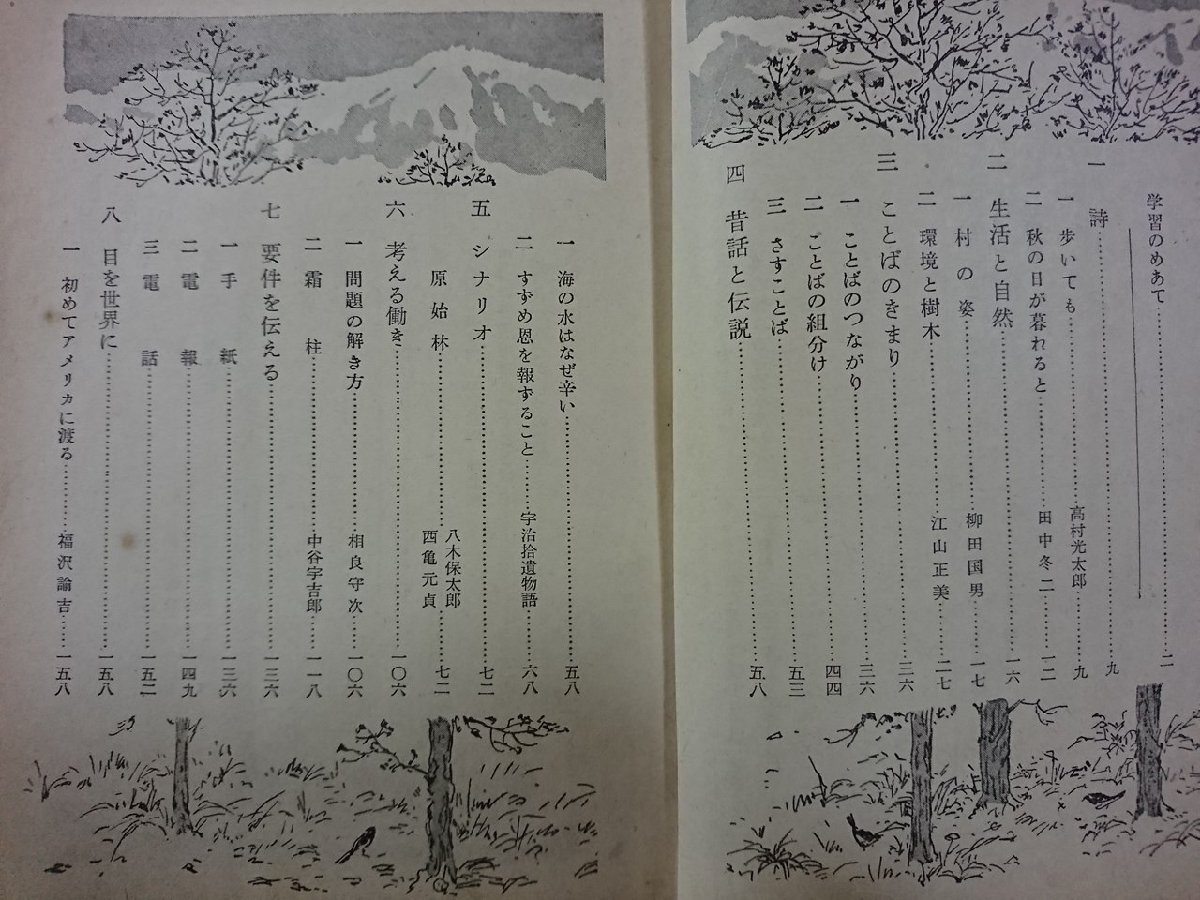 学習のめあて……二
一 詩……九
一 歩いても……高村光太郎 九
二 秋の日が暮れると……田中冬二……一二
二 生活と自然……一六
一 村の姿……柳田国男……一七
二 環境と樹木……江山正美……二七
三 ことばのきまり……三六
一 ことばのつながり……三六
二 ことばの組分け……四四
三 さすことば……五三
四 昔話と伝説……五八
一 海の水はなぜ辛い……五八
二 すずめ恩を報ずること……宇治拾遺物語……六八
五 シナリオ……七二
原始林……八木保太郎 西亀元貞 七二
六 考える働き……一〇六
一 問題の解き方……相良守次……一〇六
二 霜柱……中谷宇吉郎……一一八
七 要件を伝える……一三六
一 手紙……一三六
二 電報……一四九
三 電話……一五二
八 目を世界に……一五八
一 初めてアメリカに渡る……福沢諭吉……一五八